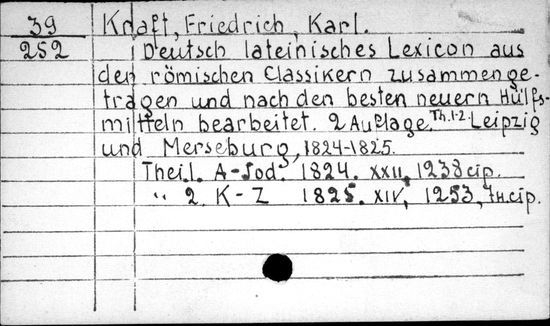 39 Kraft, Friedrich, Karl.
252 Deutsch lateinisches Lexicon aus
den römischen Classikern zusammenge-
tragen und nach den besten neuern Hülfs-
mitteln bearbeitet. 2 Auflage. Th. 1-2. Leipzig
und Merseburg, 1824-1825.
Theil. A-Jod. 1824. XXII, 1238
„ 2. K-Z 1825. XIV, 1253,